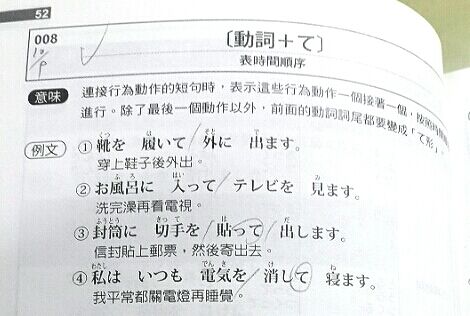 52
008
10/9
〔動詞＋て〕
表時間順序
意味 連接行為動作的短句時，表示這些行為動作一個接著一個，按照時間
進行。除了最後一個動作以外，前面的動詞詞尾都要變成「て形」。
例文 ①靴を 履いて/外に 出ます。
穿上鞋子後外出。
②お風呂に 入って/テレビを 見ます。
洗完澡再看電視。
③封筒に 切手を/貼って/出します。
信封貼上郵票，然後寄出去。
④私は いつも 電気を/消して 寝ます。
我平常都關電燈再睡覺。